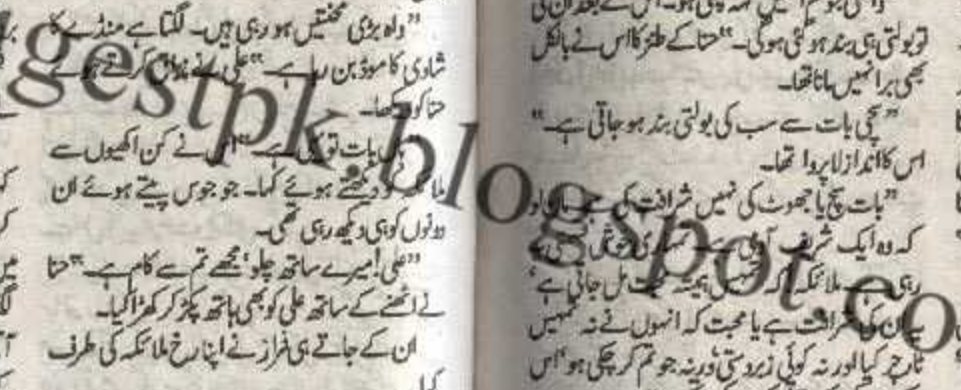 تو بولتی ہی بند ہو گئی ہو گی۔" حنا کے طنز کا اس نے بالکل
بھی برا نہیں مانا تھا۔
"سچی بات سے سب کی بولتی بند ہو جاتی ہے۔"
اس کا انداز لاپروا تھا۔
"بات سچ یا جھوٹ کی نہیں شرافت کی ہے
کہ وہ ایک شریف آدمی ہے۔ تمہاری خوش
رہی ہے ملائکہ کہ تمہیں ہمیشہ محبت مل جاتی ہے'
یہ ان کی شرافت ہے یا محبت کہ انہوں نے نہ تمہیں
ٹارچر کیا اور نہ کوئی زبردستی ورنہ جو تم کر چکی ہو' اس
"واہ بڑی محنتیں ہو رہی ہیں۔ لگتا ہے منڈے کا
شادی کا موڈ بن رہا ہے۔" علی نے مذاق کرتے ہوئے
حنا کو دیکھا۔
بات تو ہے۔" اس نے کن اکھیوں سے
ملائکہ کو دیکھتے ہوئے کہا۔ جو جوس پیتے ہوئے ان
دونوں کو ہی دیکھ رہی تھی۔
"علی! میرے ساتھ چلو' مجھے تم سے کام ہے۔" حنا
نے اٹھنے کے ساتھ علی کو بھی ہاتھ پکڑ کر کھڑا کیا۔
ان کے جاتے ہی فراز نے اپنا رخ ملائکہ کی طرف
کیا۔
gestpk.blogspot.co